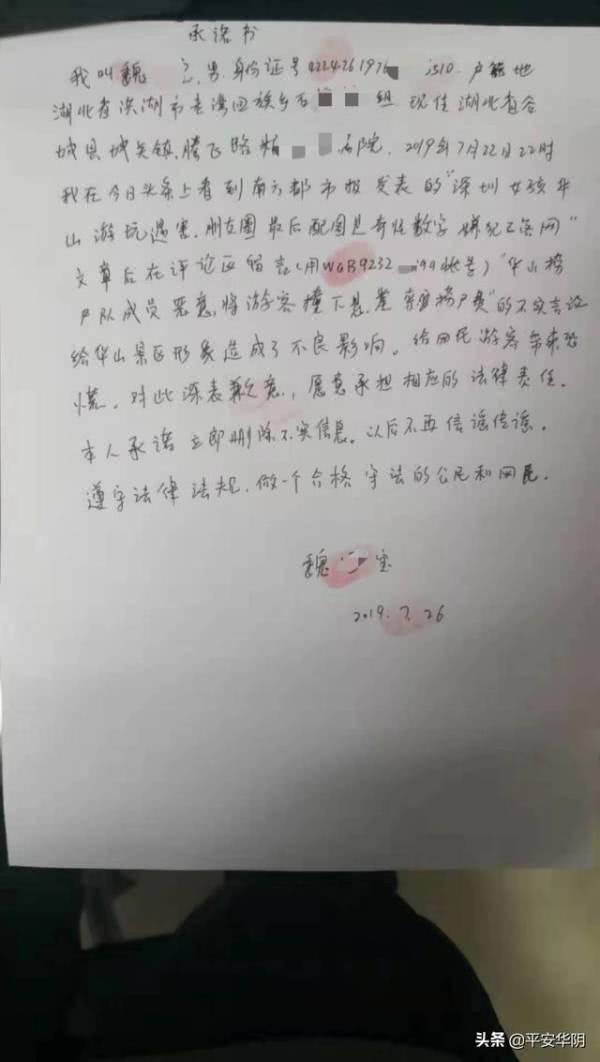 承诺书
我叫魏 男,身份证号 户籍地
湖北省洪湖市老湾回族乡 组.现住湖北省谷
城县城关镇,腾飞路 院,2019年7月22日22时
我在今日头条上看到南方都市报发表的"深圳女孩华
山游玩遇害,朋友圈最后配图是奇怪数字 网"
文章后在评论区留言(用WGB9232 此号)"华山捞
尸队成员恶意,将游客撞下悬崖 捞尸费"的不实言论
给华山景区形象造成了不良影响。给网民游客带来恐
慌。对此深表歉意,愿意承担相应的法律责任.
本人承诺立即删除不实信息。以后不再信谣传谣。
遵守法律法规,做一个合格守法的公民和网民.
魏 宝
2019.7.26
头条 @平安华阴